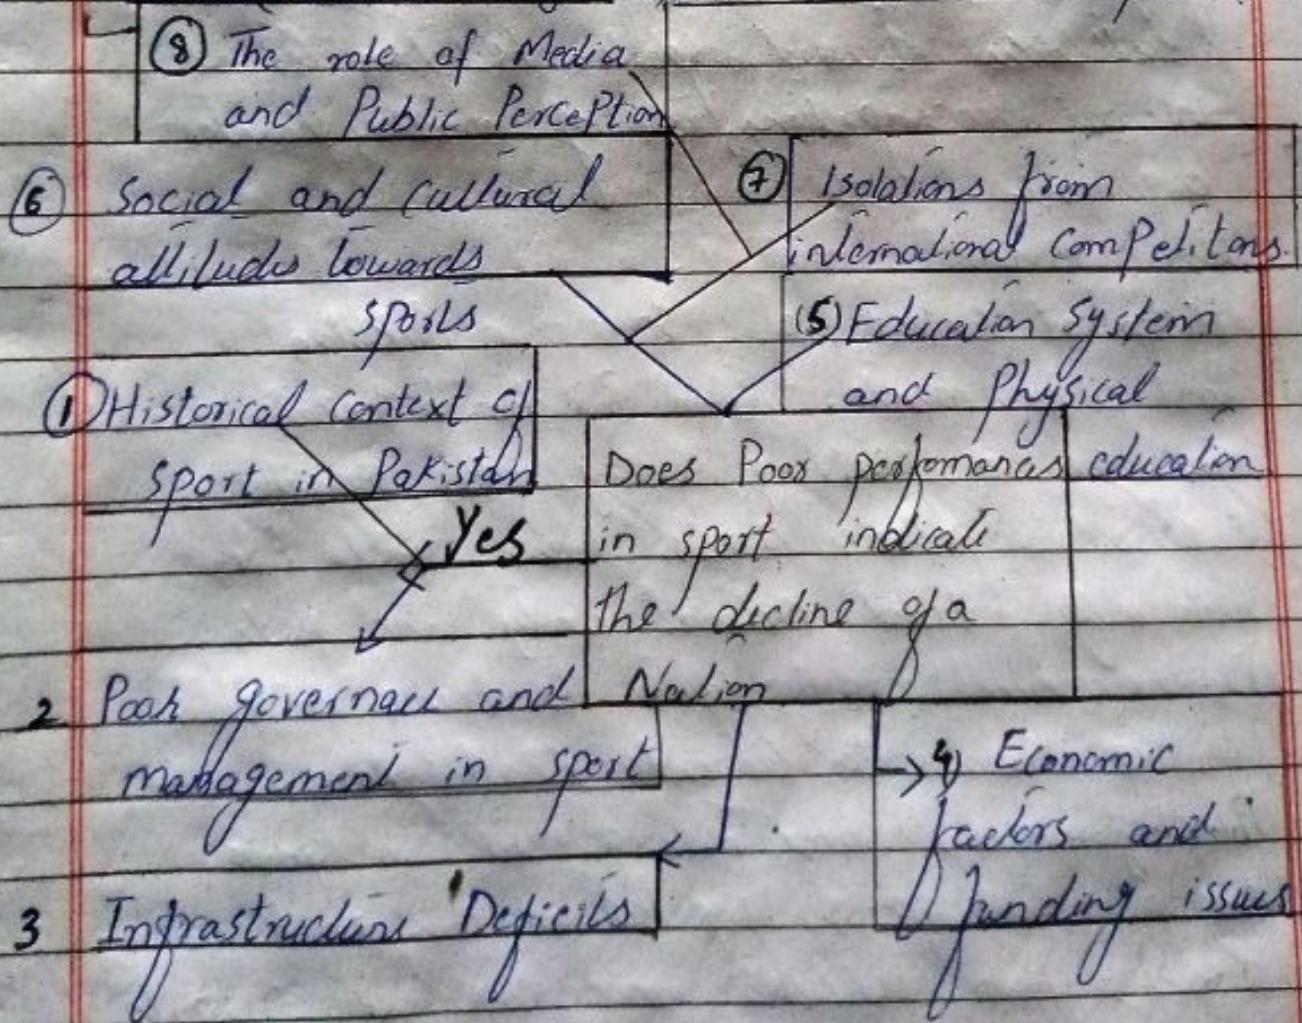 8 The role of Media
and Public Perception
6 Social and cultural
attitudes towards
sports
7 Isolations from
international competitons.
(5) Education System
and Physical
education
1 Historical context of
sport in Pakistan
Yes
Does Poor perfomances
in sport indicate
the decline of a
Nation
2 Poor governace and
management in sport
3 Infrastructure Deficits
4) Economic
factors and
funding issues